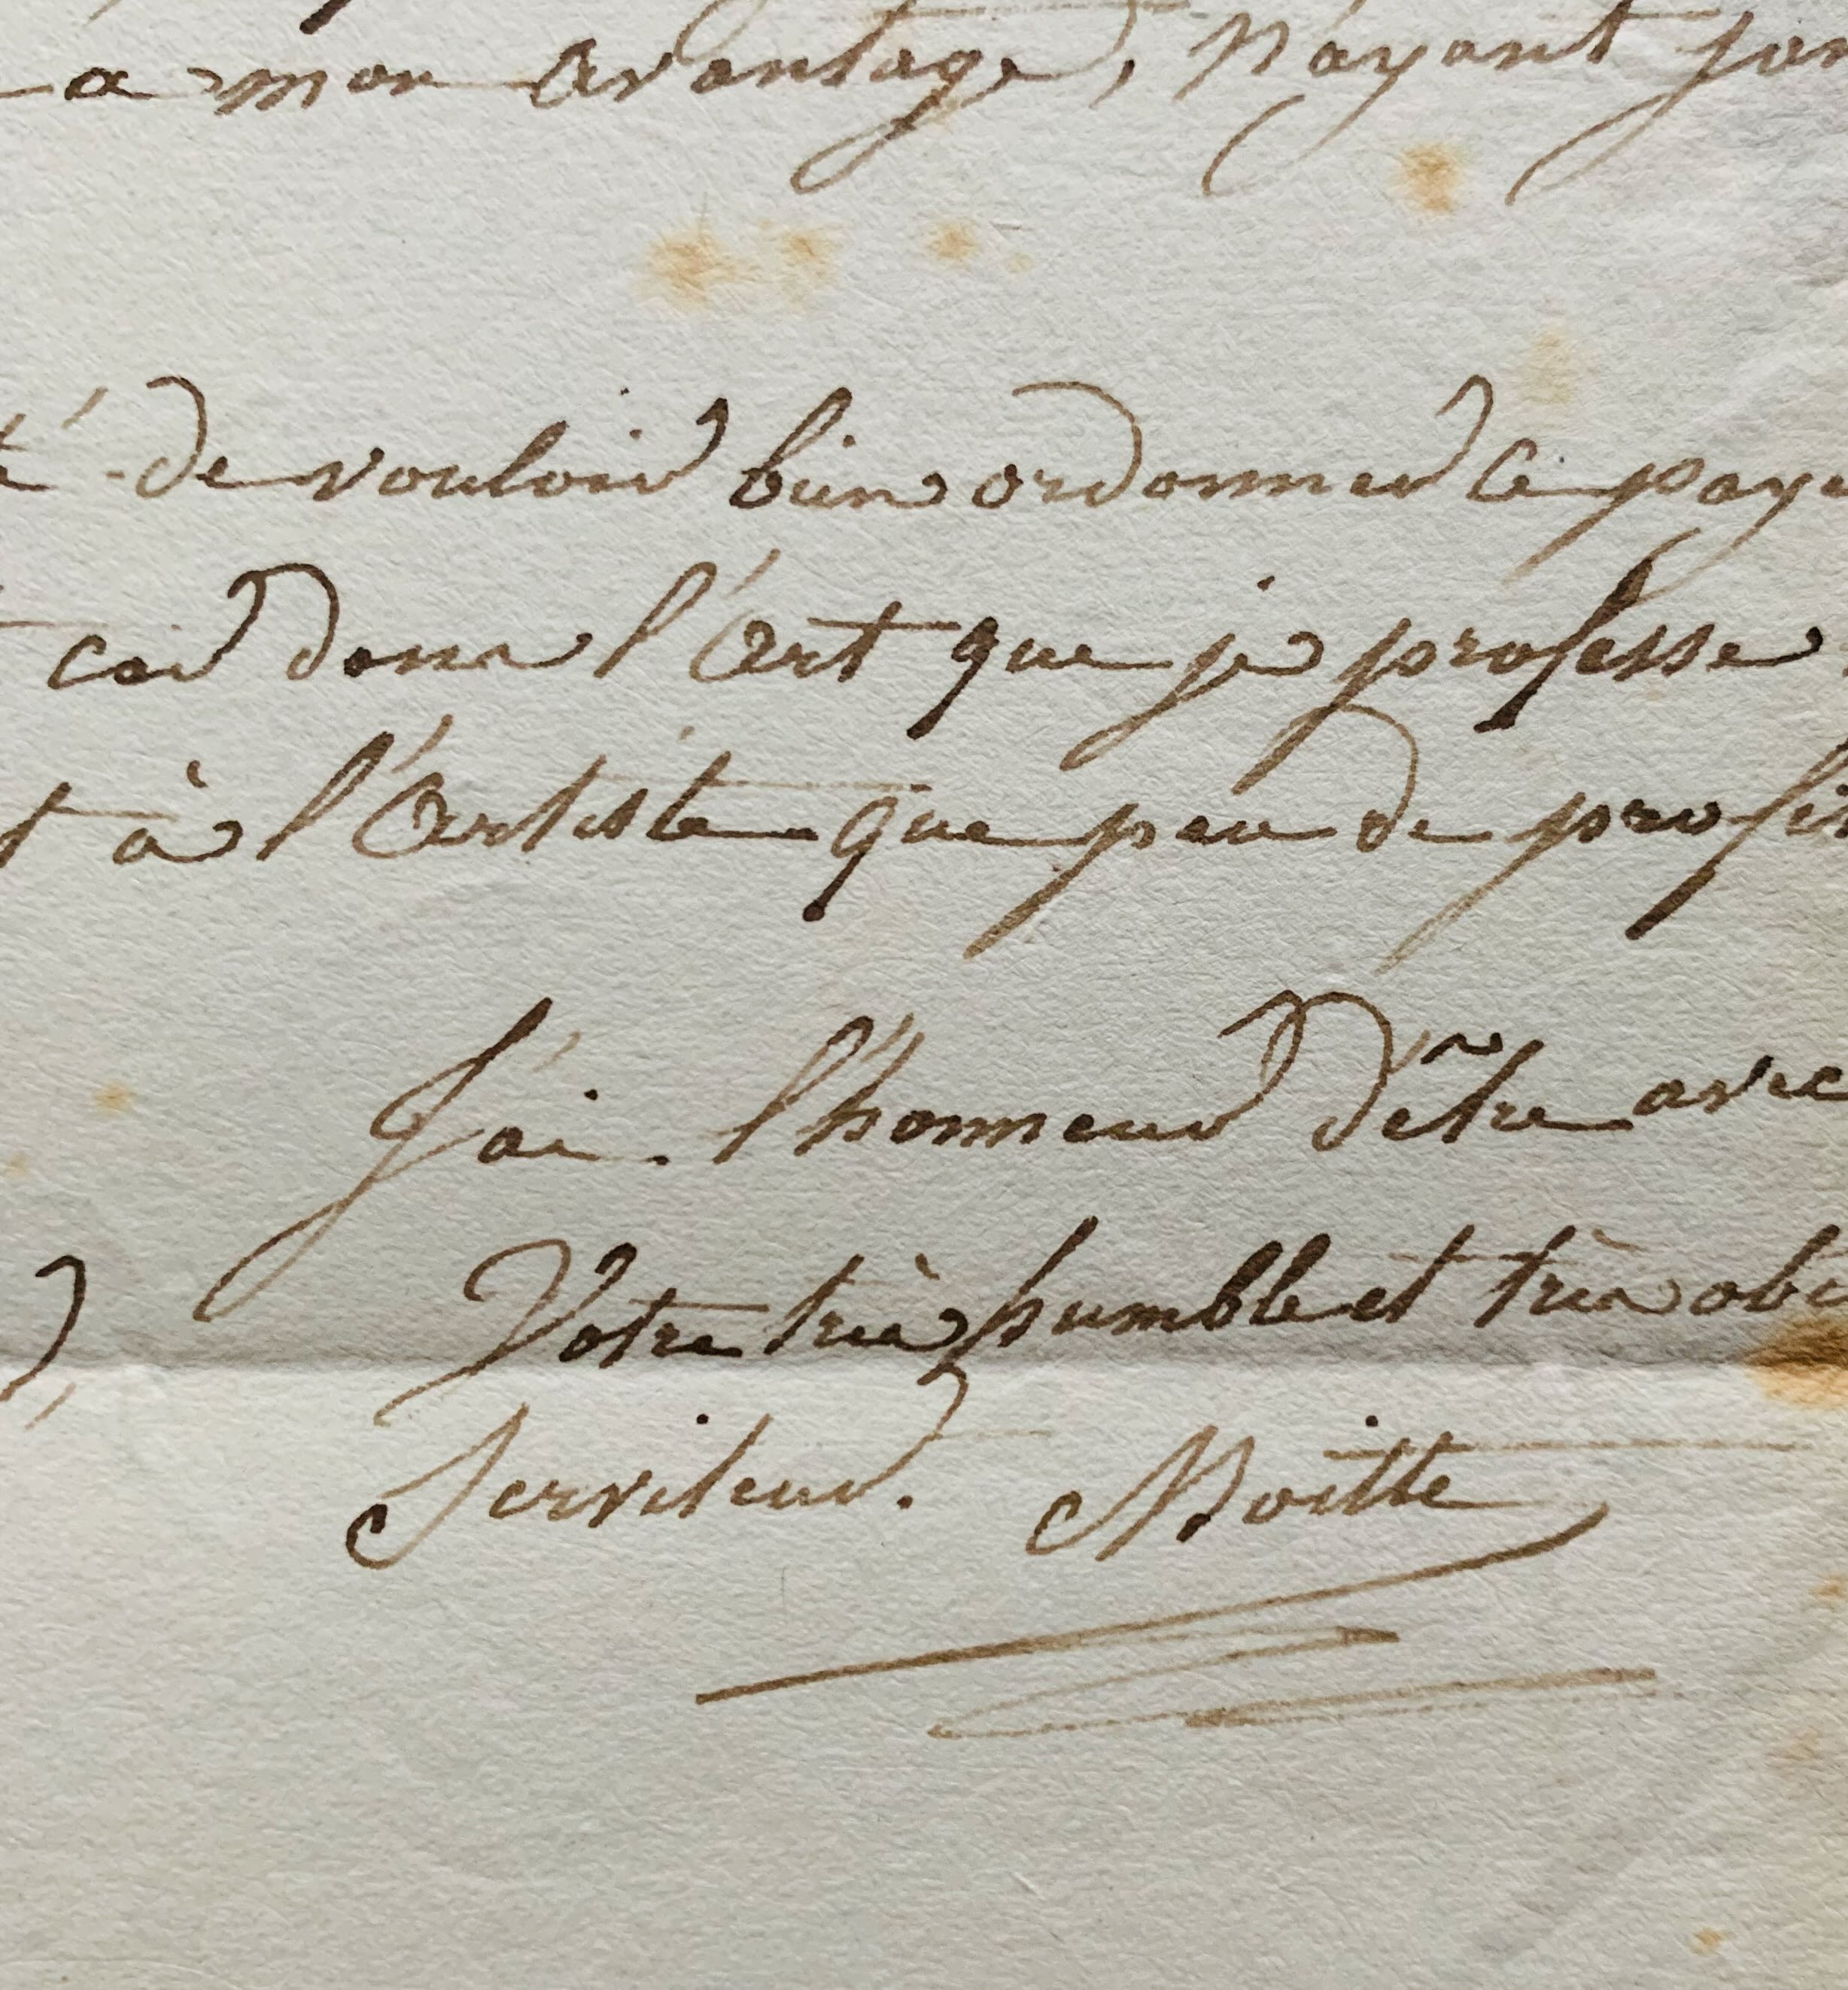 a mon avantage, N'ayant jam
té de vouloir bien ordonner le paye
car dans l'Art que je professe
t à l'Artiste que peu de profit
J'ai l'honneur d'être avec
Votre très humble et très obé
Serviteur. Moitte